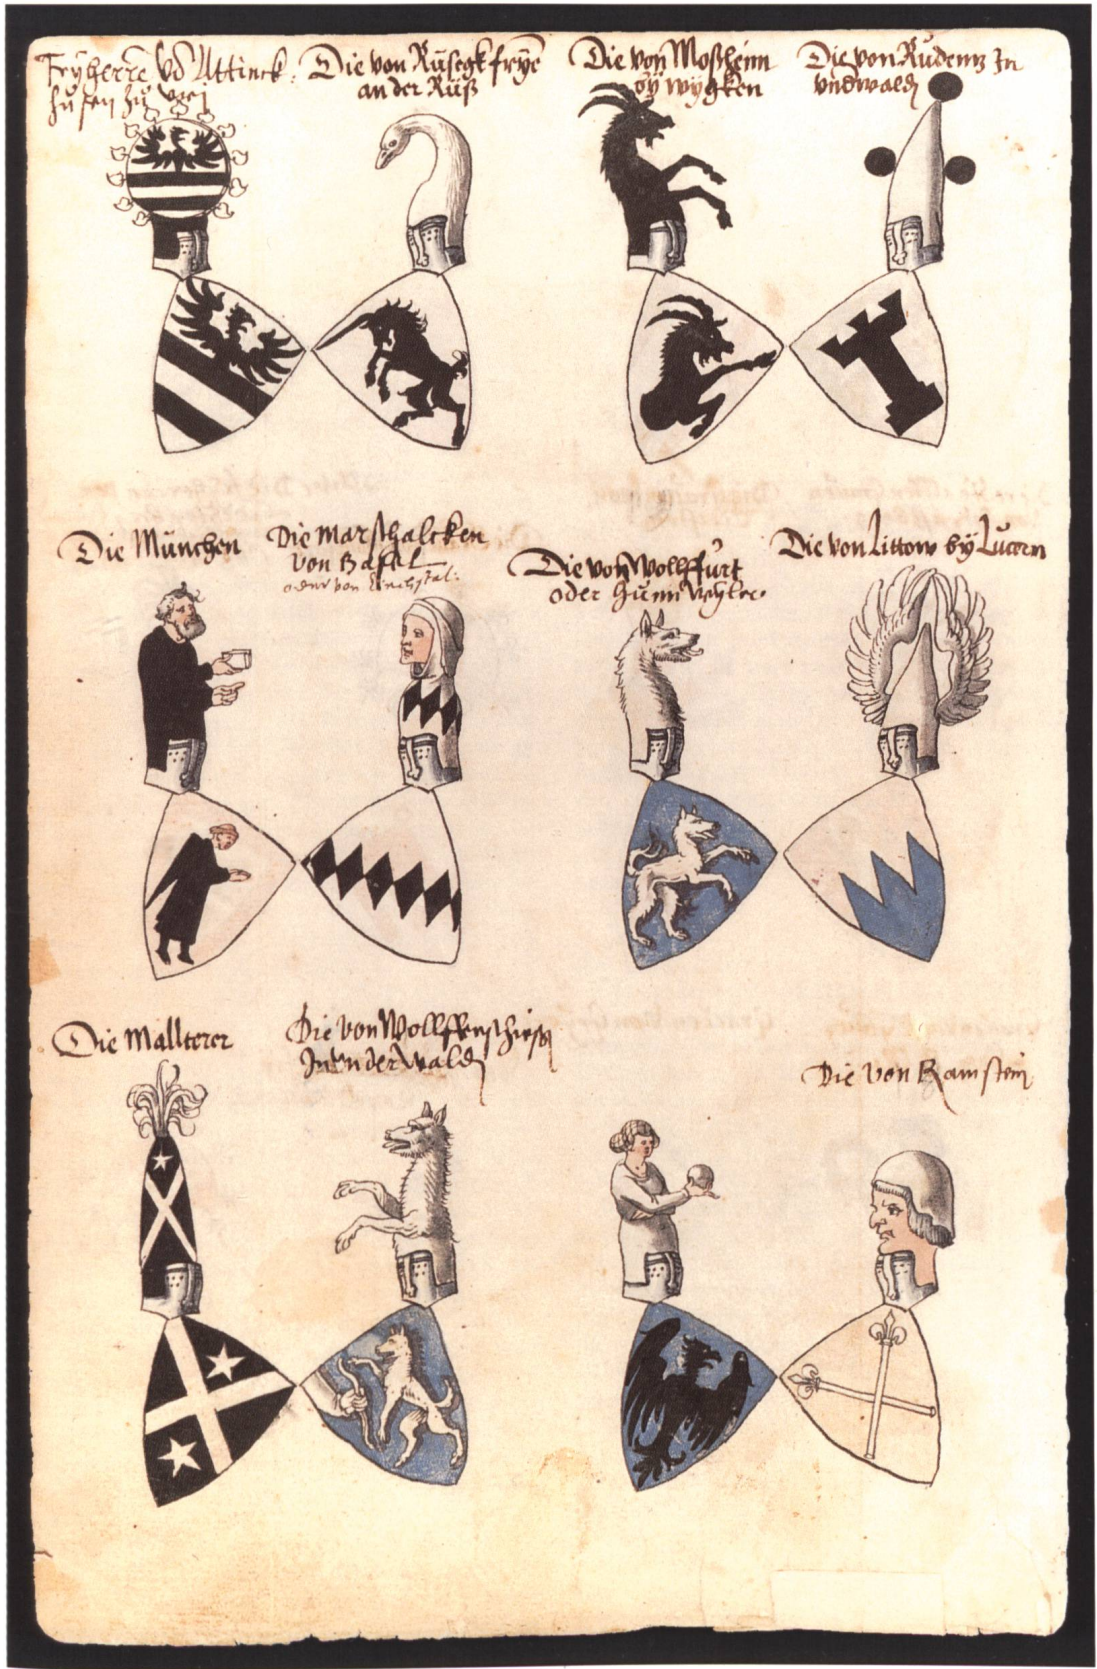 Fryherre vō Attinck
husen zu vrej
Die von Rüsegk frÿe
an der Rüß
Die von Moßheim
by wygken
Die von Rüdenz In
vndwald
Die München
Die marschalcken
von Basel
oder von
Die von Wollffurt
oder
Die von Littow bÿ Lucern
Die Mallterer
Die von Wollffenschieß
In vnderwald
Die von Ramstein